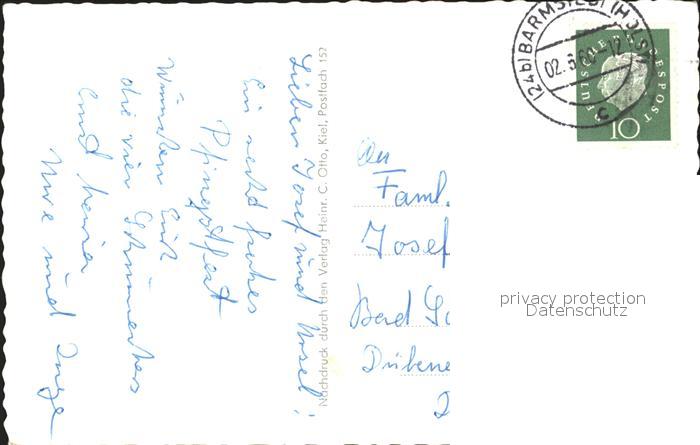 Lieber Josef und Ursel!
Ein recht frohes
Pfingstfest
wünschen Euch
die vier
Ernst
Uwe und Inge
Nachdruck durch den Verlag Heinr. C. Otto, Kiel, Postfach 152
An
Faml.
Josef
Bad
Dübene
(24b) BARMSTEDT (HOLST)
02.6.60-12
c
DEUTSCHE BUNDESPOST
10
privacy protection
Datenschutz